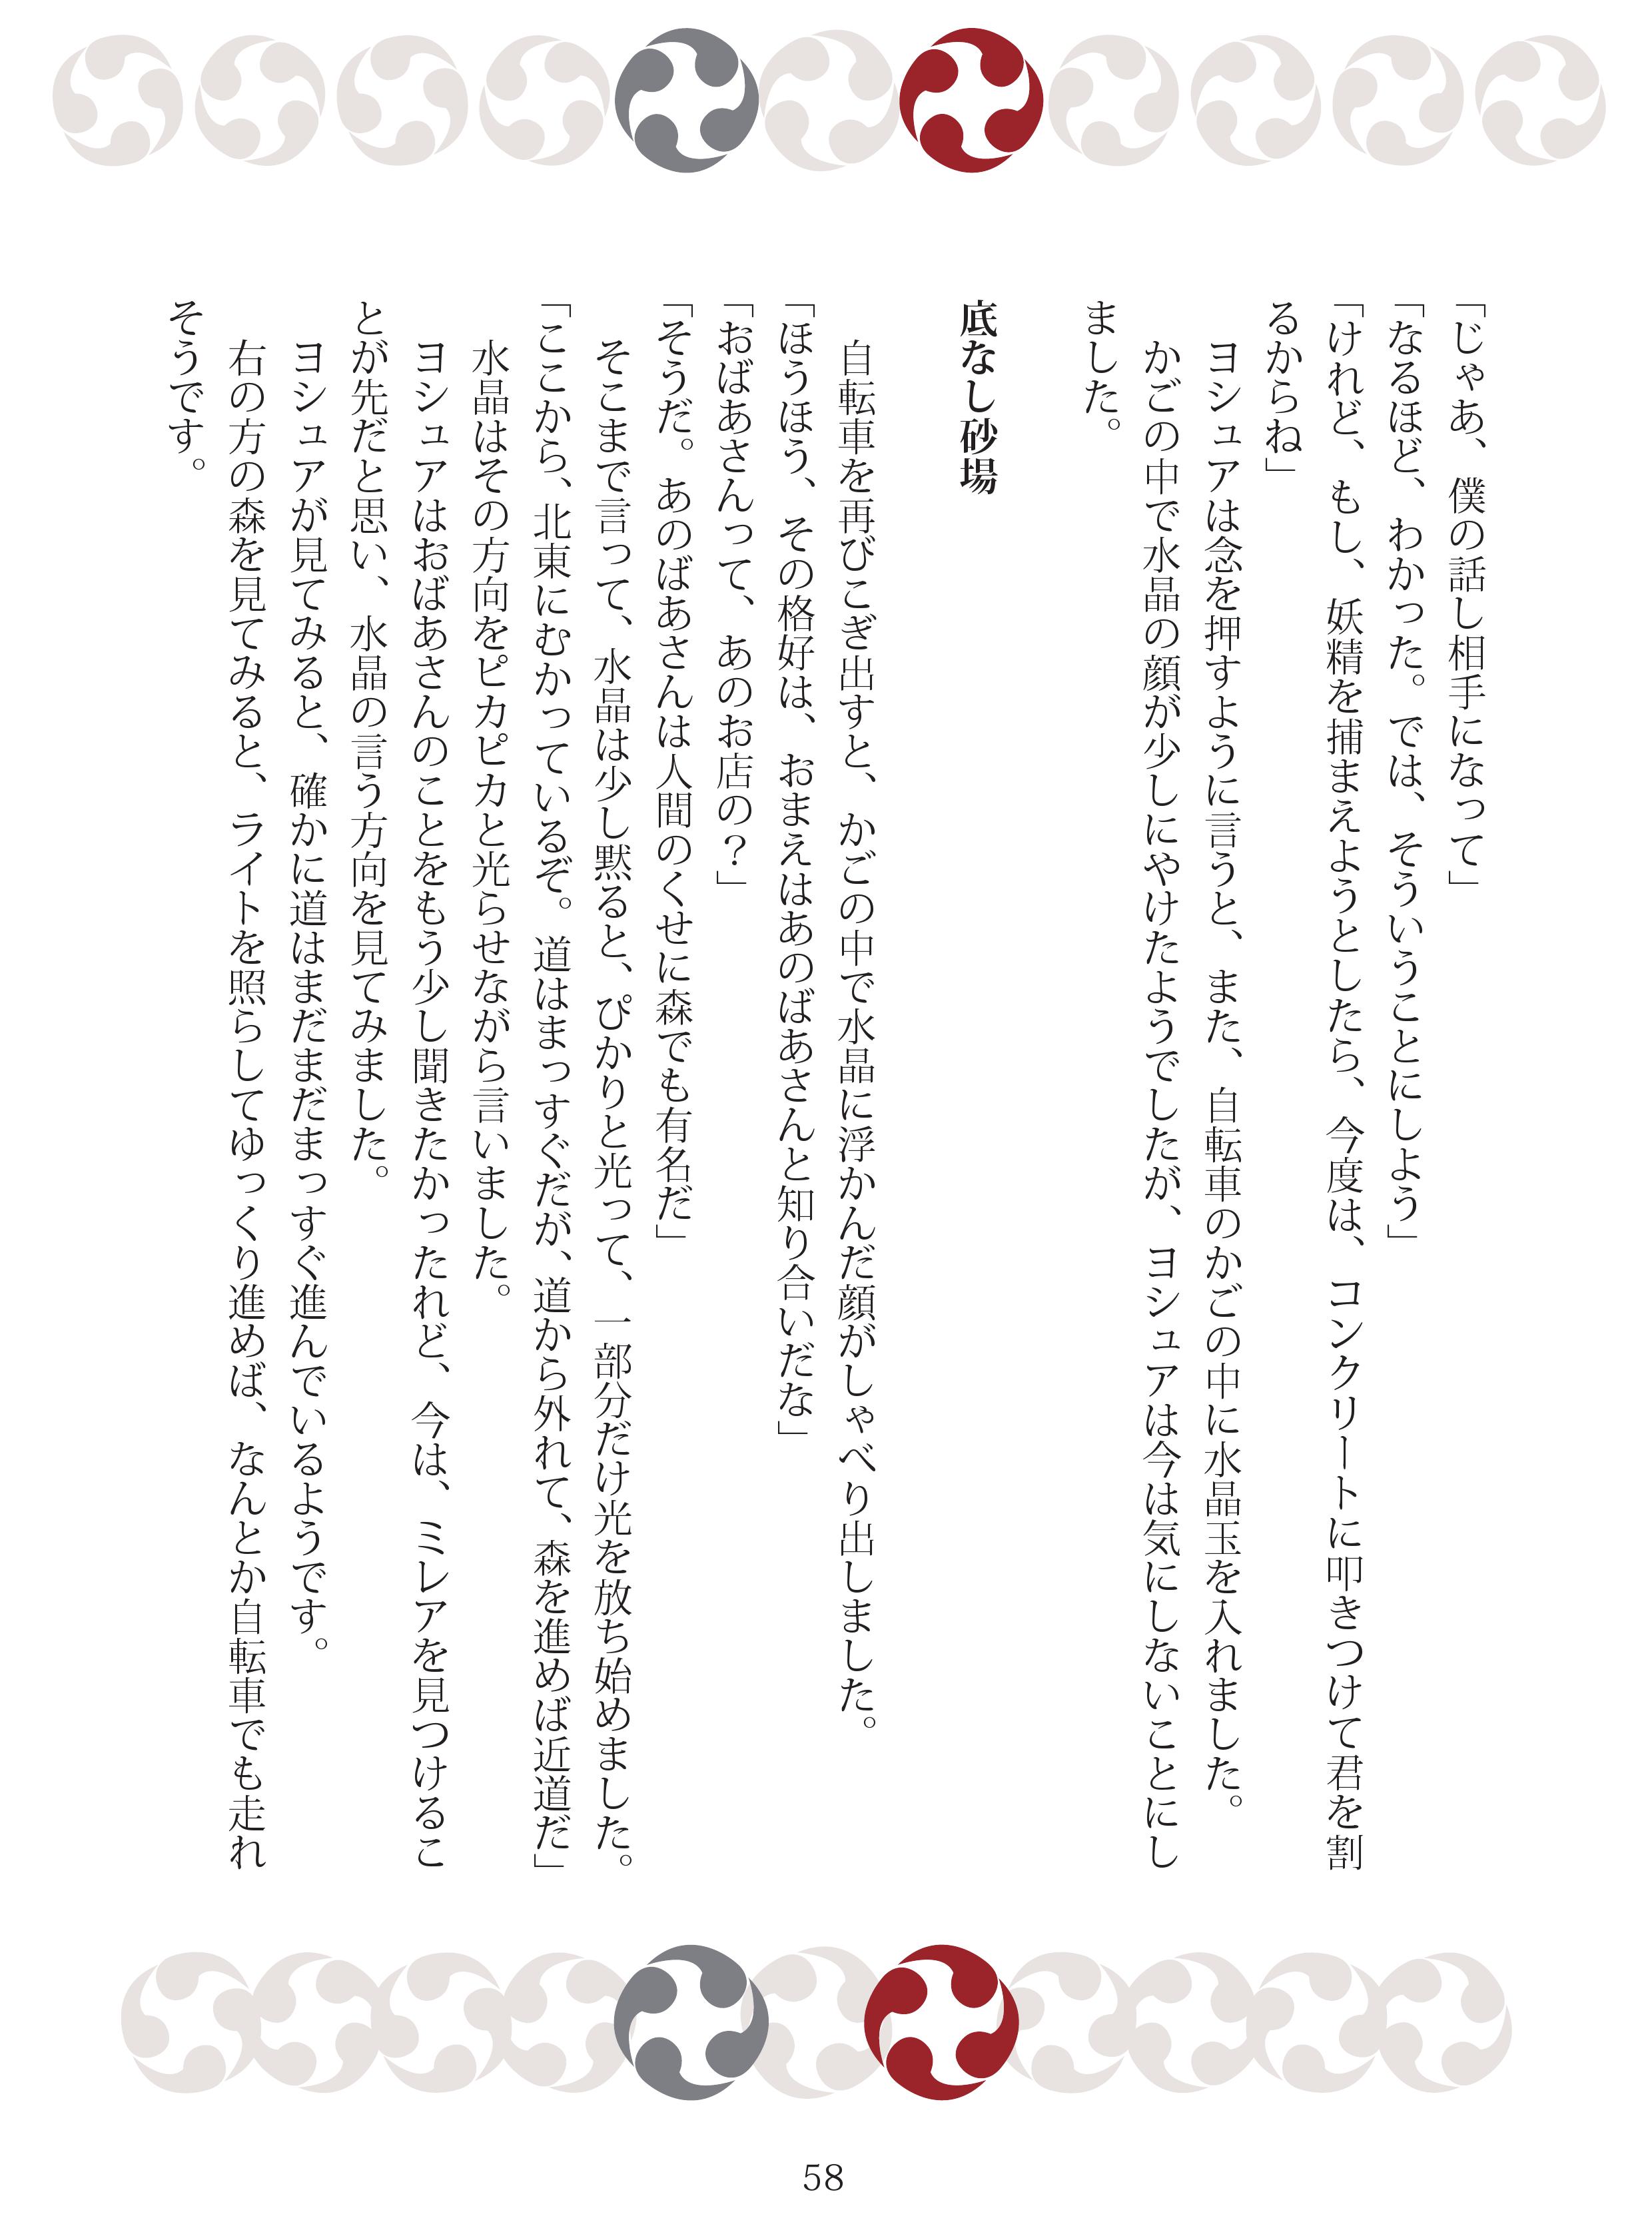 「じゃあ、僕の話し相手になって」
「なるほど、わかった。では、そういうことにしよう」
「けれど、もし、妖精を捕まえようとしたら、今度は、コンクリートに叩きつけて君を割
るからね」
ヨシュアは念を押すように言うと、また、自転車のかごの中に水晶玉を入れました。
かごの中で水晶の顔が少しにやけたようでしたが、ヨシュアは今は気にしないことにし
ました。
底なし砂場
自転車を再びこぎ出すと、かごの中で水晶に浮かんだ顔がしゃべり出しました。
「ほうほう、その格好は、おまえはあのばあさんと知り合いだな」
「おばあさんって、あのお店の？」
「そうだ。あのばあさんは人間のくせに森でも有名だ」
そこまで言って、水晶は少し黙ると、ぴかりと光って、一部分だけ光を放ち始めました。
「ここから、北東にむかっているぞ。道はまっすぐだが、道から外れて、森を進めば近道だ」
水晶はその方向をピカピカと光らせながら言いました。
ヨシュアはおばあさんのことをもう少し聞きたかったれど、今は、ミレアを見つけるこ
とが先だと思い、水晶の言う方向を見てみました。
ヨシュアが見てみると、確かに道はまだまだまっすぐ進んでいるようです。
右の方の森を見てみると、ライトを照らしてゆっくり進めば、なんとか自転車でも走れ
そうです。
58